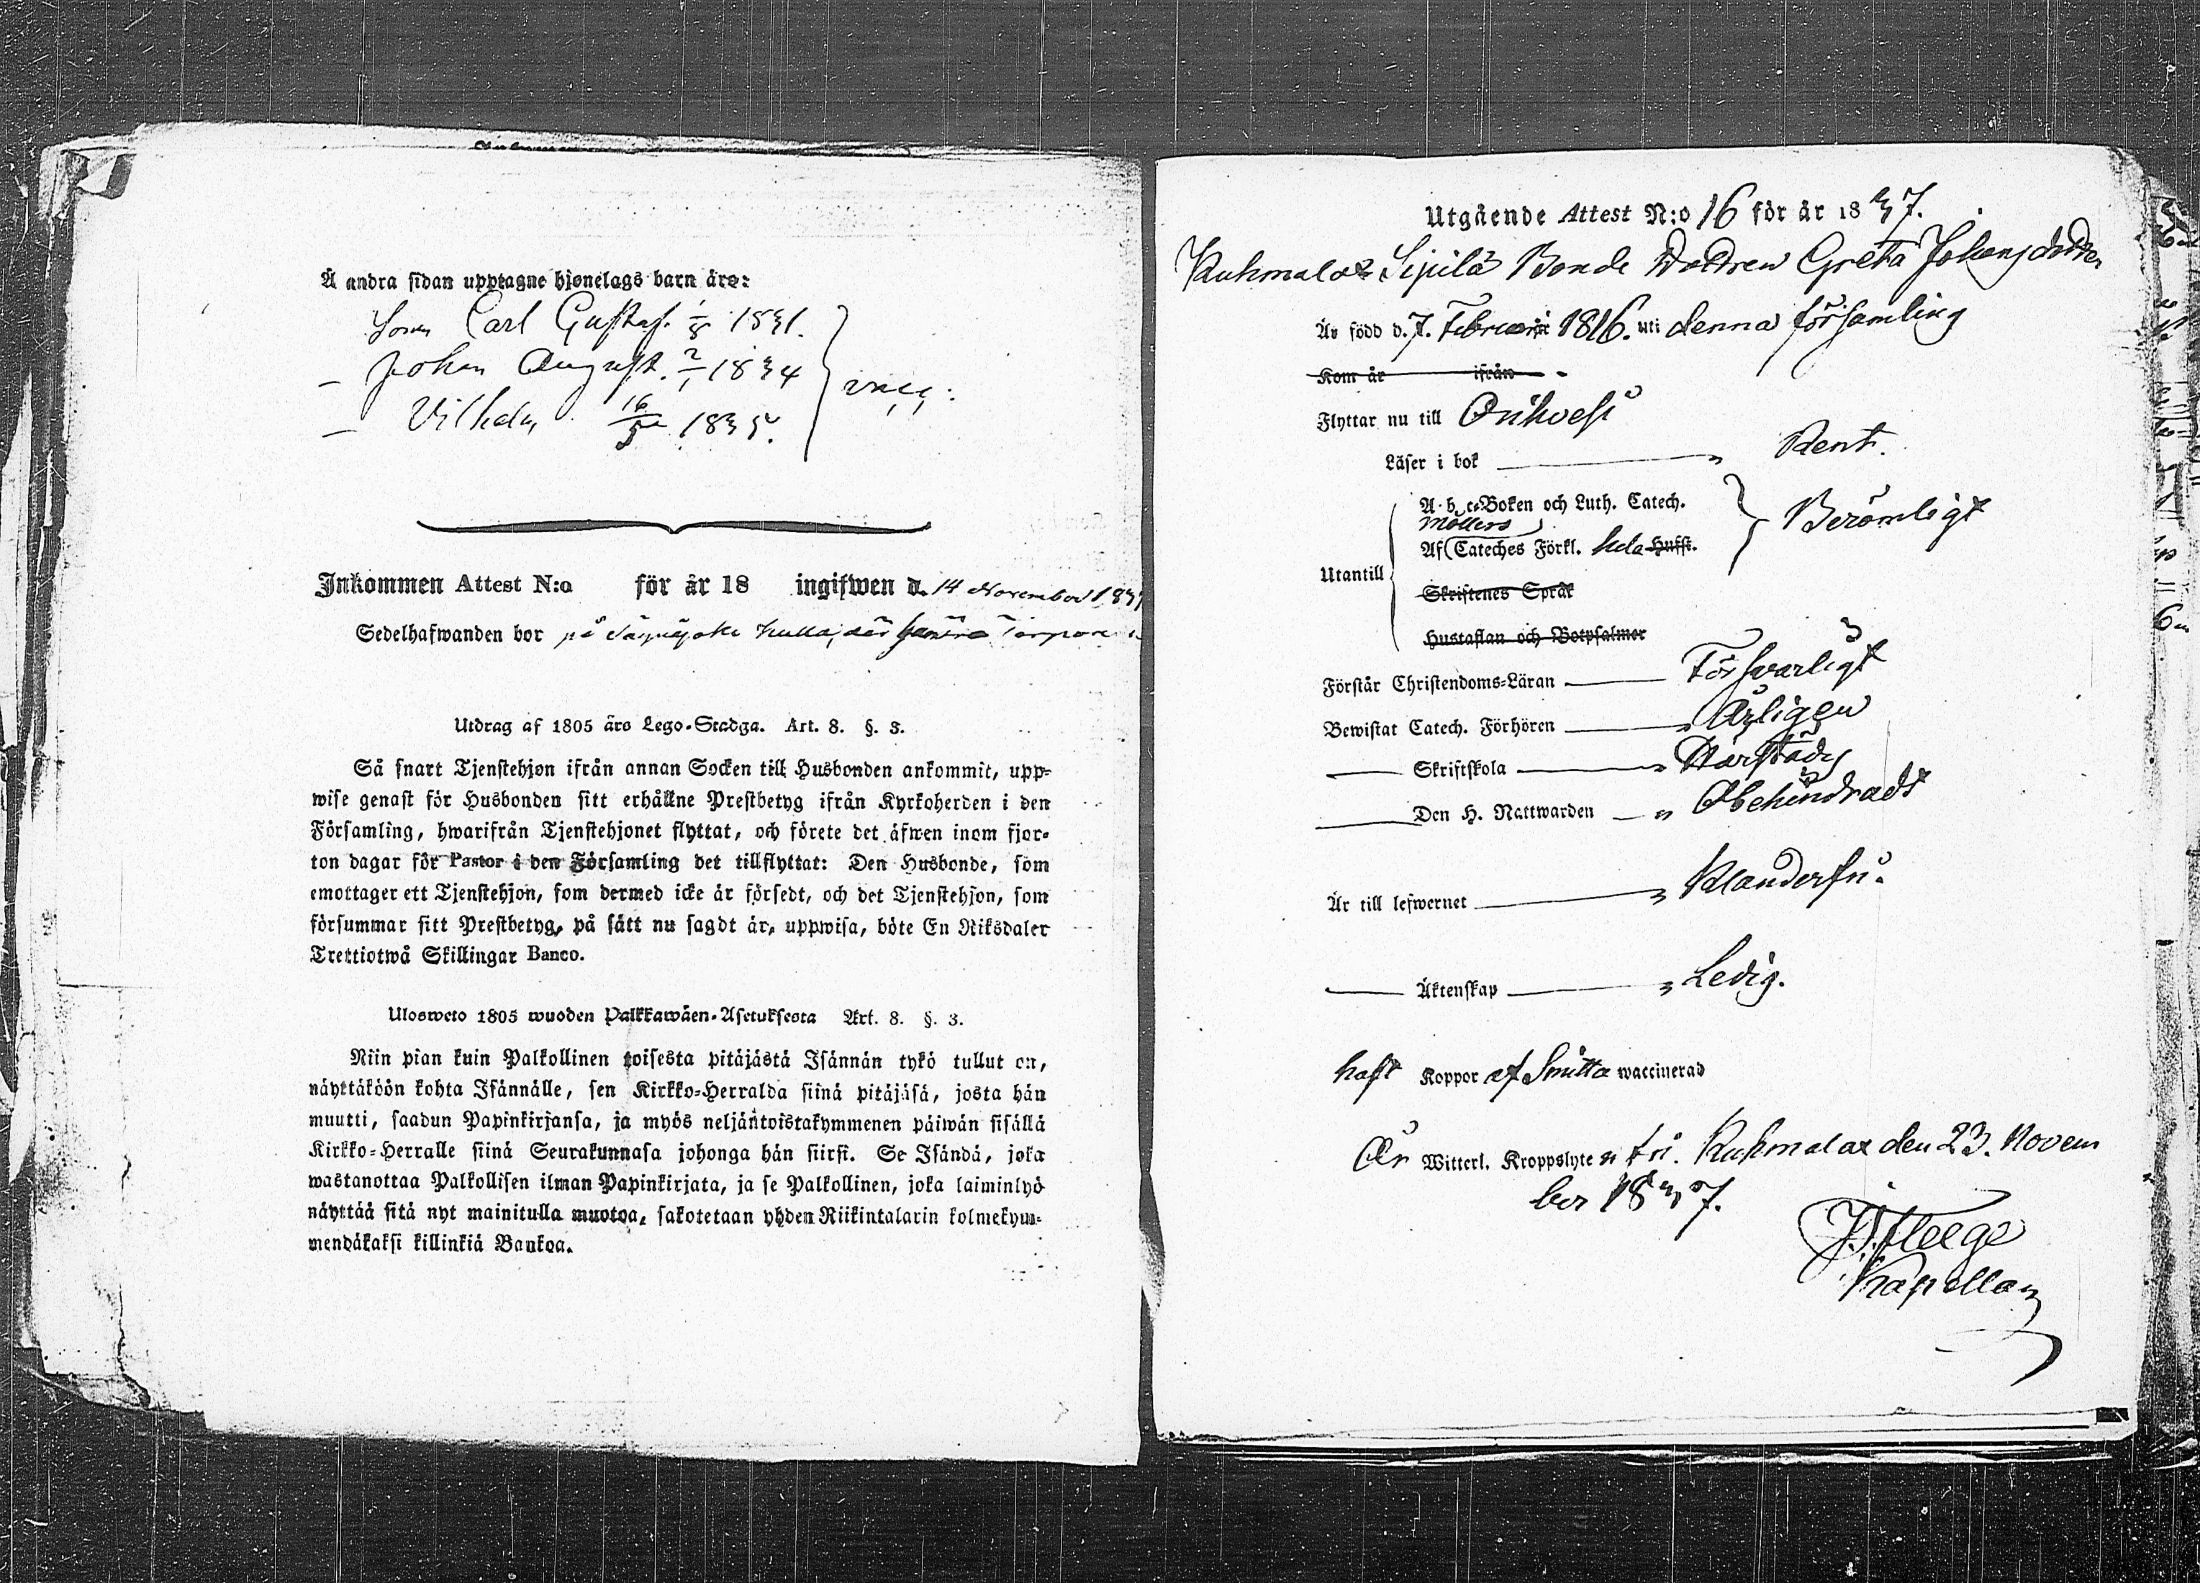 Å andra sidan upptagne hjonelags barn äro:
Son Carl Gustaf. 1/8 1831.
— Johan August. 2/1 1834
— Vilhelm 16/5 1835.
vacc:
Inkommen Attest N:o för år 18 ingifwen d. 14 November 183
Sedelhafwanden bor på kulla, där
Utdrag af 1805 års Lego-Stadga. Art. 8. §. 3.
Så snart Tjenstehjon ifrån annan Socken till Husbonden ankommit, upp-
wise genast för Husbonden sitt erhållne Prestbetyg ifrån Kyrkoherden i den
Församling, hwarifrån Tjenstehjonet flyttat, och förete det äfwen inom fjor-
ton dagar för Pastor i den Församling det tillflyttat: Den Husbonde, som
emottager ett Tjenstehjon, som dermed icke är försedt, och det Tjenstehjon, som
försummar sitt Prestbetyg, på sätt nu sagdt är, uppwisa, böte En Riksdaler
Trettiotwå Skillingar Banco.
Ulosweto 1805 wuoden Palkkawäen-Asetuksesta Art. 8. §. 3.
Niin pian kuin Palkollinen toisesta pitäjästä Isännän tykö tullut on,
näyttäköön kohta Isännälle, sen Kirkko-Herralda siinä pitäjäsä, josta hän
muutti, saadun Papinkirjansa, ja myös neljäntoistakymmenen päiwän sisällä
Kirkko-Herralle siinä Seurakunnasa johonga hän siirsi. Se Isändä, joka
wastanottaa Palkollisen ilman Papinkirjata, ja se Palkollinen, joka laiminlyö
näyttää sitä nyt mainitulla muotoa, sakotetaan yhden Riikintalarin kolmekym-
mendäkaksi killinkiä Bankoa.
Utgående Attest N:o 16 för år 1837.
Kuhmalax Sipilä Bonde Dottren Greta Johansdotter
Är född d. 7. Februarii 1816. uti denna församling
Kom år ifrån
Flyttar nu till Orihvesi
Läser i bok — " Rent.
Utantill
A-b-c-Boken och Luth. Catech.
Möllers
Af Cateches Förkl. hela Hufst.
Berömligt
Skriftenes Språk
Hustaflan och Botpsalmer
Förstår Christendoms-Läran — Försvarligt
Bewistat Catech. Förhören — " Årligen
— Skriftskola — "
— Den H. Nattwarden — " Obehindradt
Är till lefwernet — " Klanderfri.
— Äktenskap — " Ledig.
haft Koppor af Smitta waccinerad
Är Witterl. Kroppslyte n fri. Kuhmalax den 23. Novem
ber 1837.
Kapellan